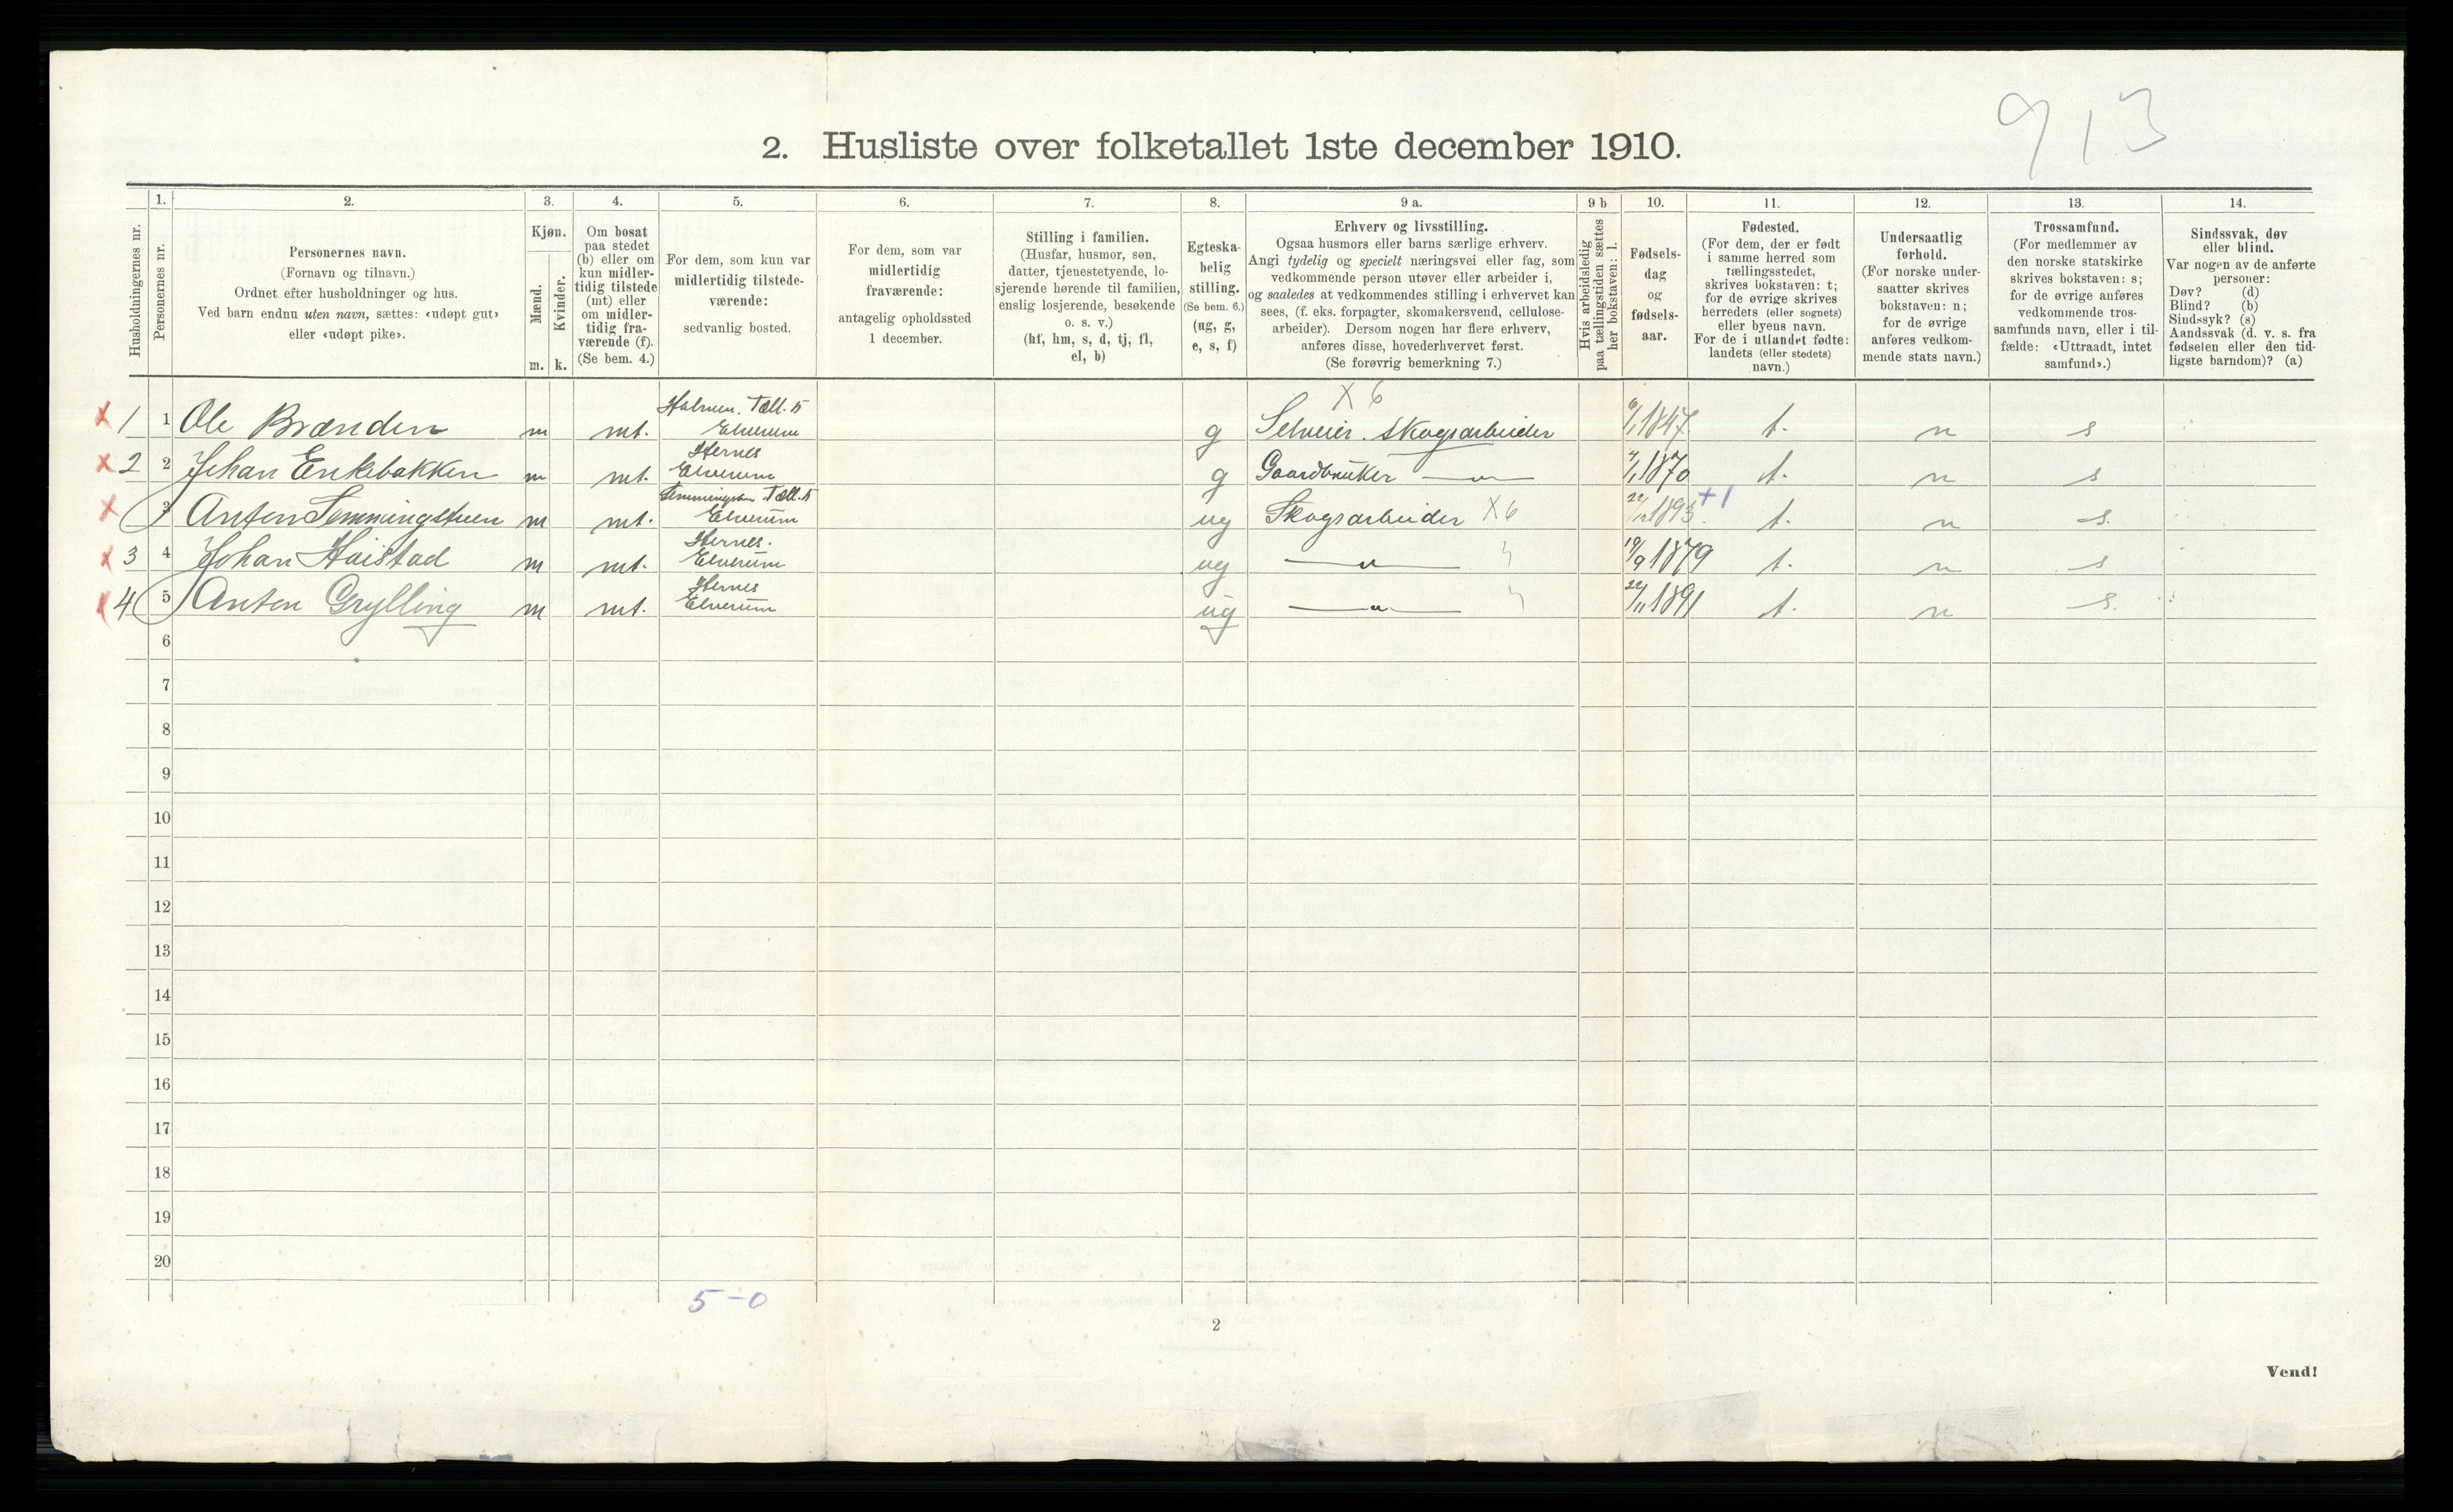 913
2. Husliste over folketallet 1ste december 1910.
Husholdningernes nr.
1.
Personernes nr.
2.
Personernes navn.
(Fornavn og tilnavn.)
Ordnet efter husholdninger og hus.
Ved barn endnu uten navn, sættes: «udøpt gut»
eller «udøpt pike».
3.
Kjøn.
Mænd.
m.
Kvinder.
k.
4.
Om bosat
paa stedet
(b) eller om
kun midler-
tidig tilstede
(mt) eller
om midler-
tidig fra-
værende (f).
(Se bem. 4.)
5.
For dem, som kun var
midlertidig tilstede-
værende:
sedvanlig bosted.
6.
For dem, som var
midlertidig
fraværende:
antagelig opholdssted
1 december.
7.
Stilling i familien.
(Husfar, husmor, søn,
datter, tjenestetyende, lo-
sjerende hørende til familien,
enslig losjerende, besøkende
o. s. v.)
(hf, hm, s, d, tj, fl,
el, b)
8.
Egteska-
belig
stilling.
(Se bem. 6.)
(ug, g,
e, s, f)
9 a.
Erhverv og livsstilling.
Ogsaa husmors eller barns særlige erhverv.
Angi tydelig og specielt næringsvei eller fag, som
vedkommende person utøver eller arbeider i,
og saaledes at vedkommendes stilling i erhvervet kan
sees, (f. eks. forpagter, skomakersvend, cellulose-
arbeider). Dersom nogen har flere erhverv,
anføres disse, hovederhvervet først.
(Se forøvrig bemerkning 7.)
9 b
Hvis arbeidsledig
paa tællingstiden sættes
her bokstaven: l.
10.
Fødsels-
dag
og
fødsels-
aar.
11.
Fødested.
(For dem, der er født
i samme herred som
tællingsstedet,
skrives bokstaven: t;
for de øvrige skrives
herredets (eller sognets)
eller byens navn.
For de i utlandet fødte:
landets (eller stedets)
navn.)
12.
Undersaatlig
forhold.
(For norske under-
saatter skrives
bokstaven: n;
for de øvrige
anføres vedkom-
mende stats navn.)
13.
Trossamfund.
(For medlemmer av
den norske statskirke
skrives bokstaven: s;
for de øvrige anføres
vedkommende tros-
samfunds navn, eller i til-
fælde: «Uttraadt, intet
samfund».)
14.
Sindssvak, døv
eller blind.
Var nogen av de anførte
personer:
Døv? (d)
Blind? (b)
Sindssyk? (s)
Aandssvak (d. v. s. fra
fødselen eller den tid-
ligste barndom)? (a)
X 6
x 1 1 Ole Brænden m mt. Tæll. 15 Elverum g Selveier. Skogsarbeider 1847 t. n s
x 2 2 Johan Enkebakken m mt. Hernes Elverum g Gaardbruker —"— 1870 t. n s
x 3 Anton Semmingstuen m mt. Tæll. 15 Elverum ug Skogsarbeider X6 1893 +1 t. n s.
x 3 4 Johan Haistad m mt. Hernes. Elverum ug —"— 19/9 1879 t. n s
4 5 Anton Grylling m mt. Hernes Elverum ug —"— 22/11 1891 t. n s.
6
7
8
9
10
11
12
13
14
15
16
17
18
19
20
5-0
2
Vend!